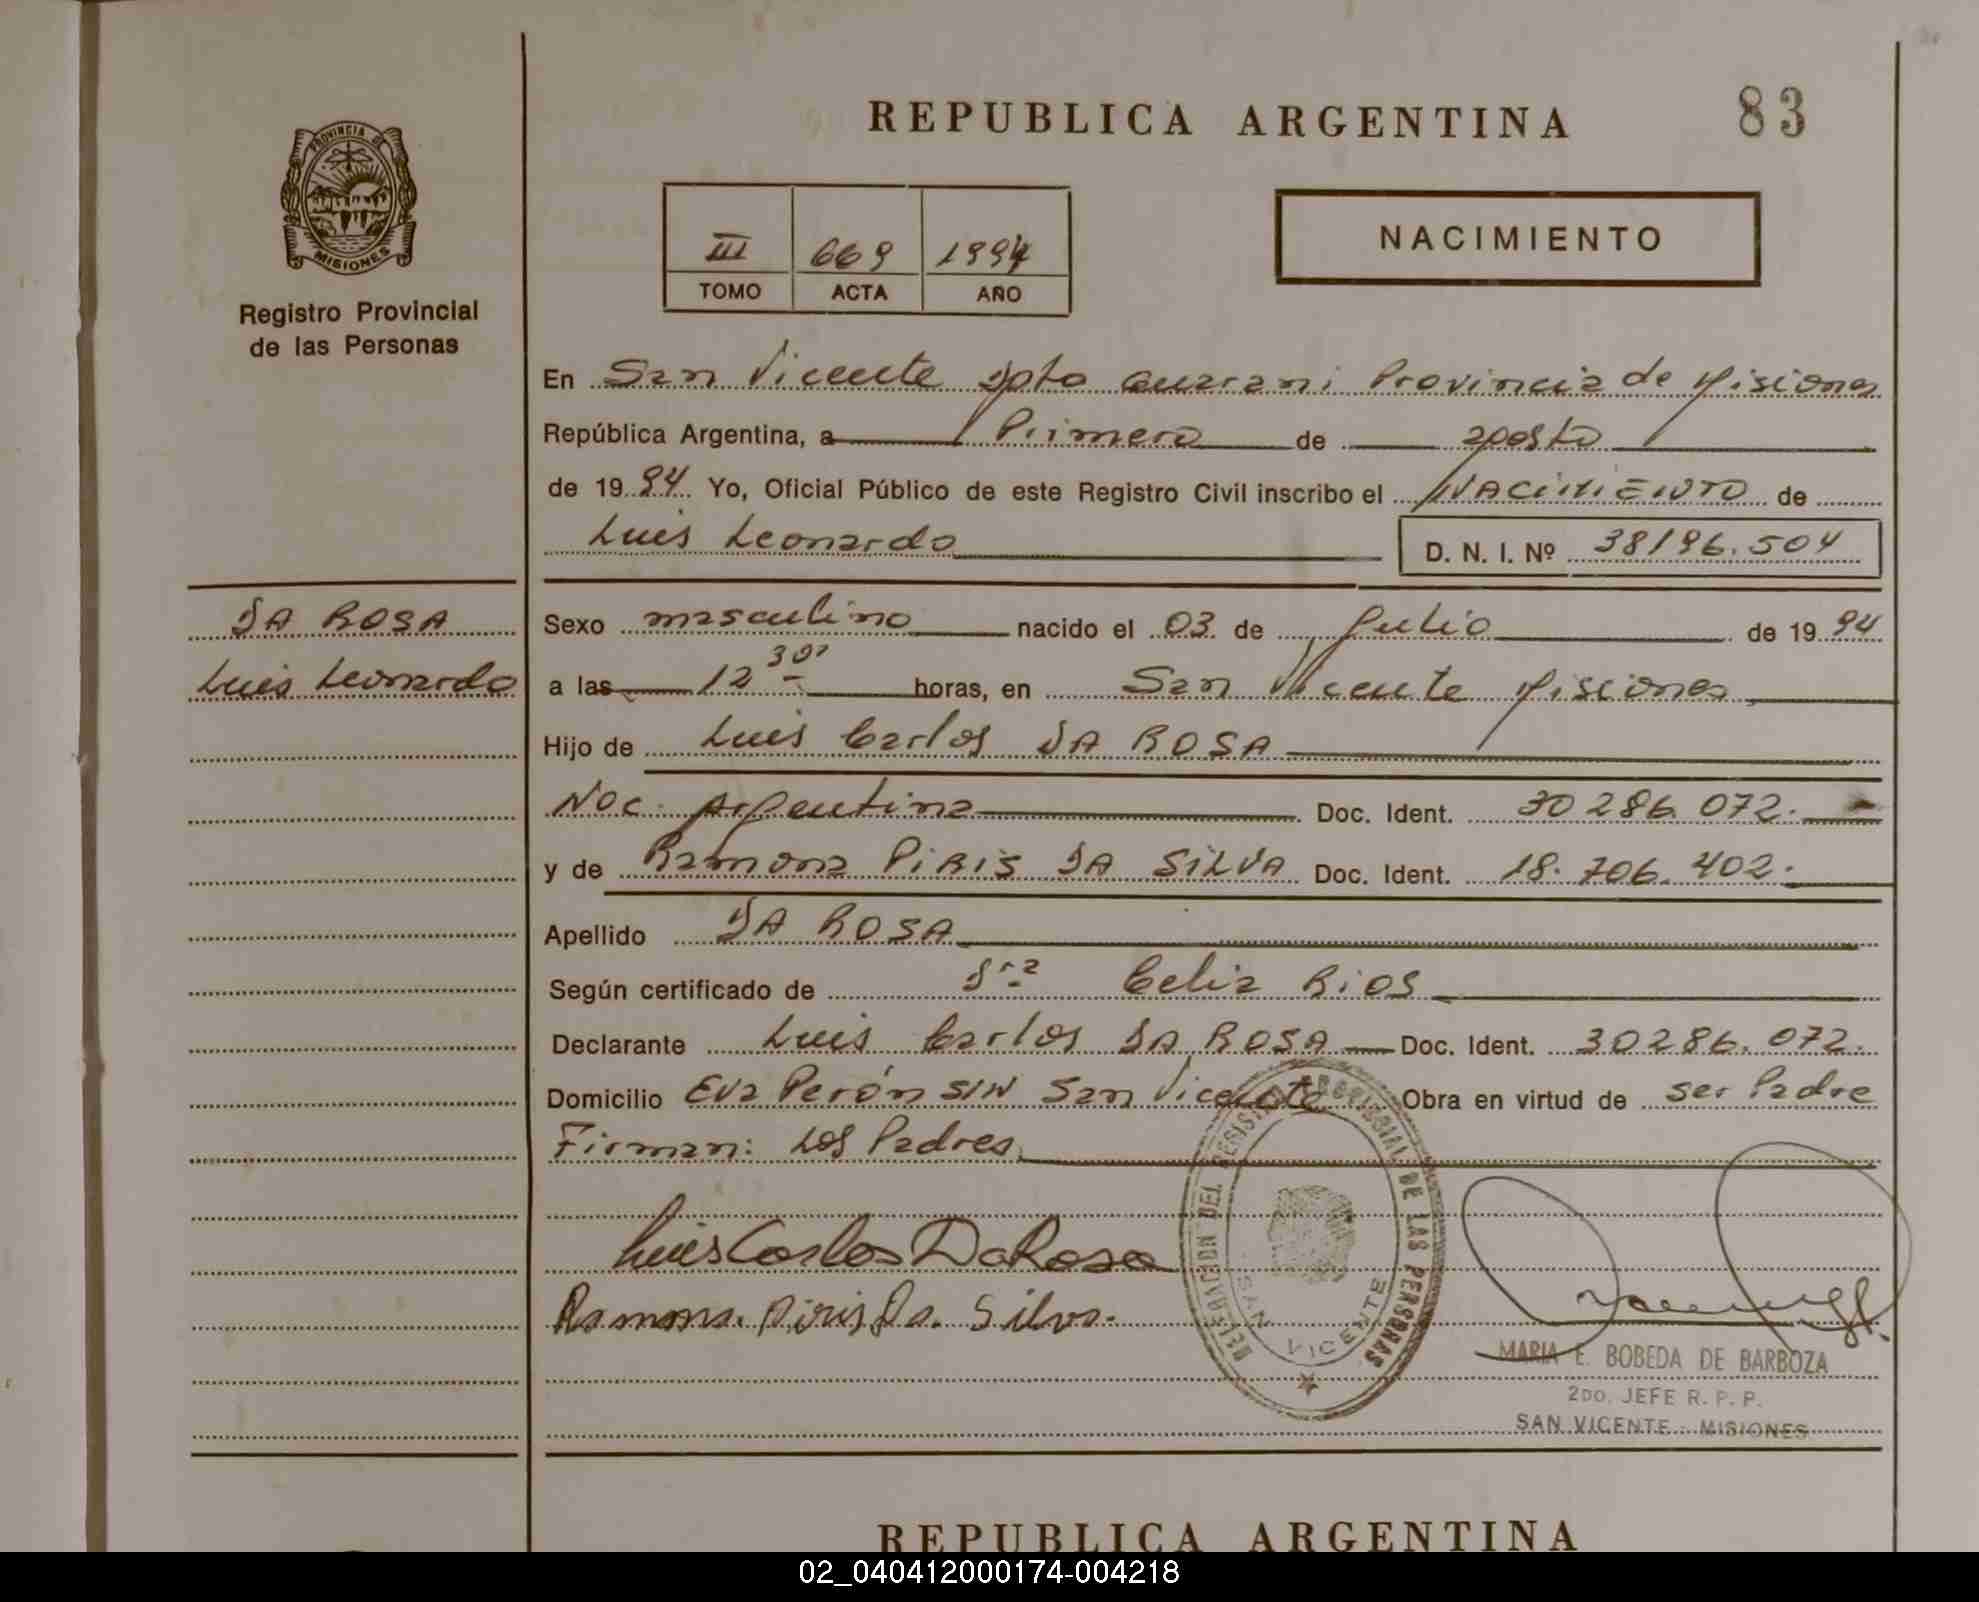 REPUBLICA ARGENTINA
83
PROVINCIA DE
MISIONES
Registro Provincial
de las Personas
III 669 1994
TOMO ACTA AÑO
NACIMIENTO
En San Vicente Dpto Guarani Provincia de Misiones
República Argentina, a Primero de agosto
de 19 94 Yo, Oficial Público de este Registro Civil inscribo el NACIMIENTO de
Luis Leonardo D. N. I. Nº 38196.504
DA ROSA
Luis Leonardo
Sexo masculino nacido el 03 de Julio de 19 94
a las 12 30' horas, en San Vicente Misiones
Hijo de Luis Carlos DA ROSA
Nac. Argentina Doc. Ident. 30286.072.
y de Ramona PIRIS DA SILVA Doc. Ident. 18.706.402.
Apellido DA ROSA
Según certificado de Dra Celia Rios
Declarante Luis Carlos DA ROSA Doc. Ident. 30286.072.
Domicilio Eva Perón S/N San Vicente Obra en virtud de ser Padre
Firman: Los Padres
Luis Carlos Da Rosa
Ramona. Piris Da. Silva.
DELEGACION DEL REGISTRO PROVINCIAL DE LAS PERSONAS
SAN VICENTE
MARIA E. BOBEDA DE BARBOZA
2DO. JEFE R. P. P.
SAN VICENTE - MISIONES
REPUBLICA ARGENTINA
02_040412000174-004218